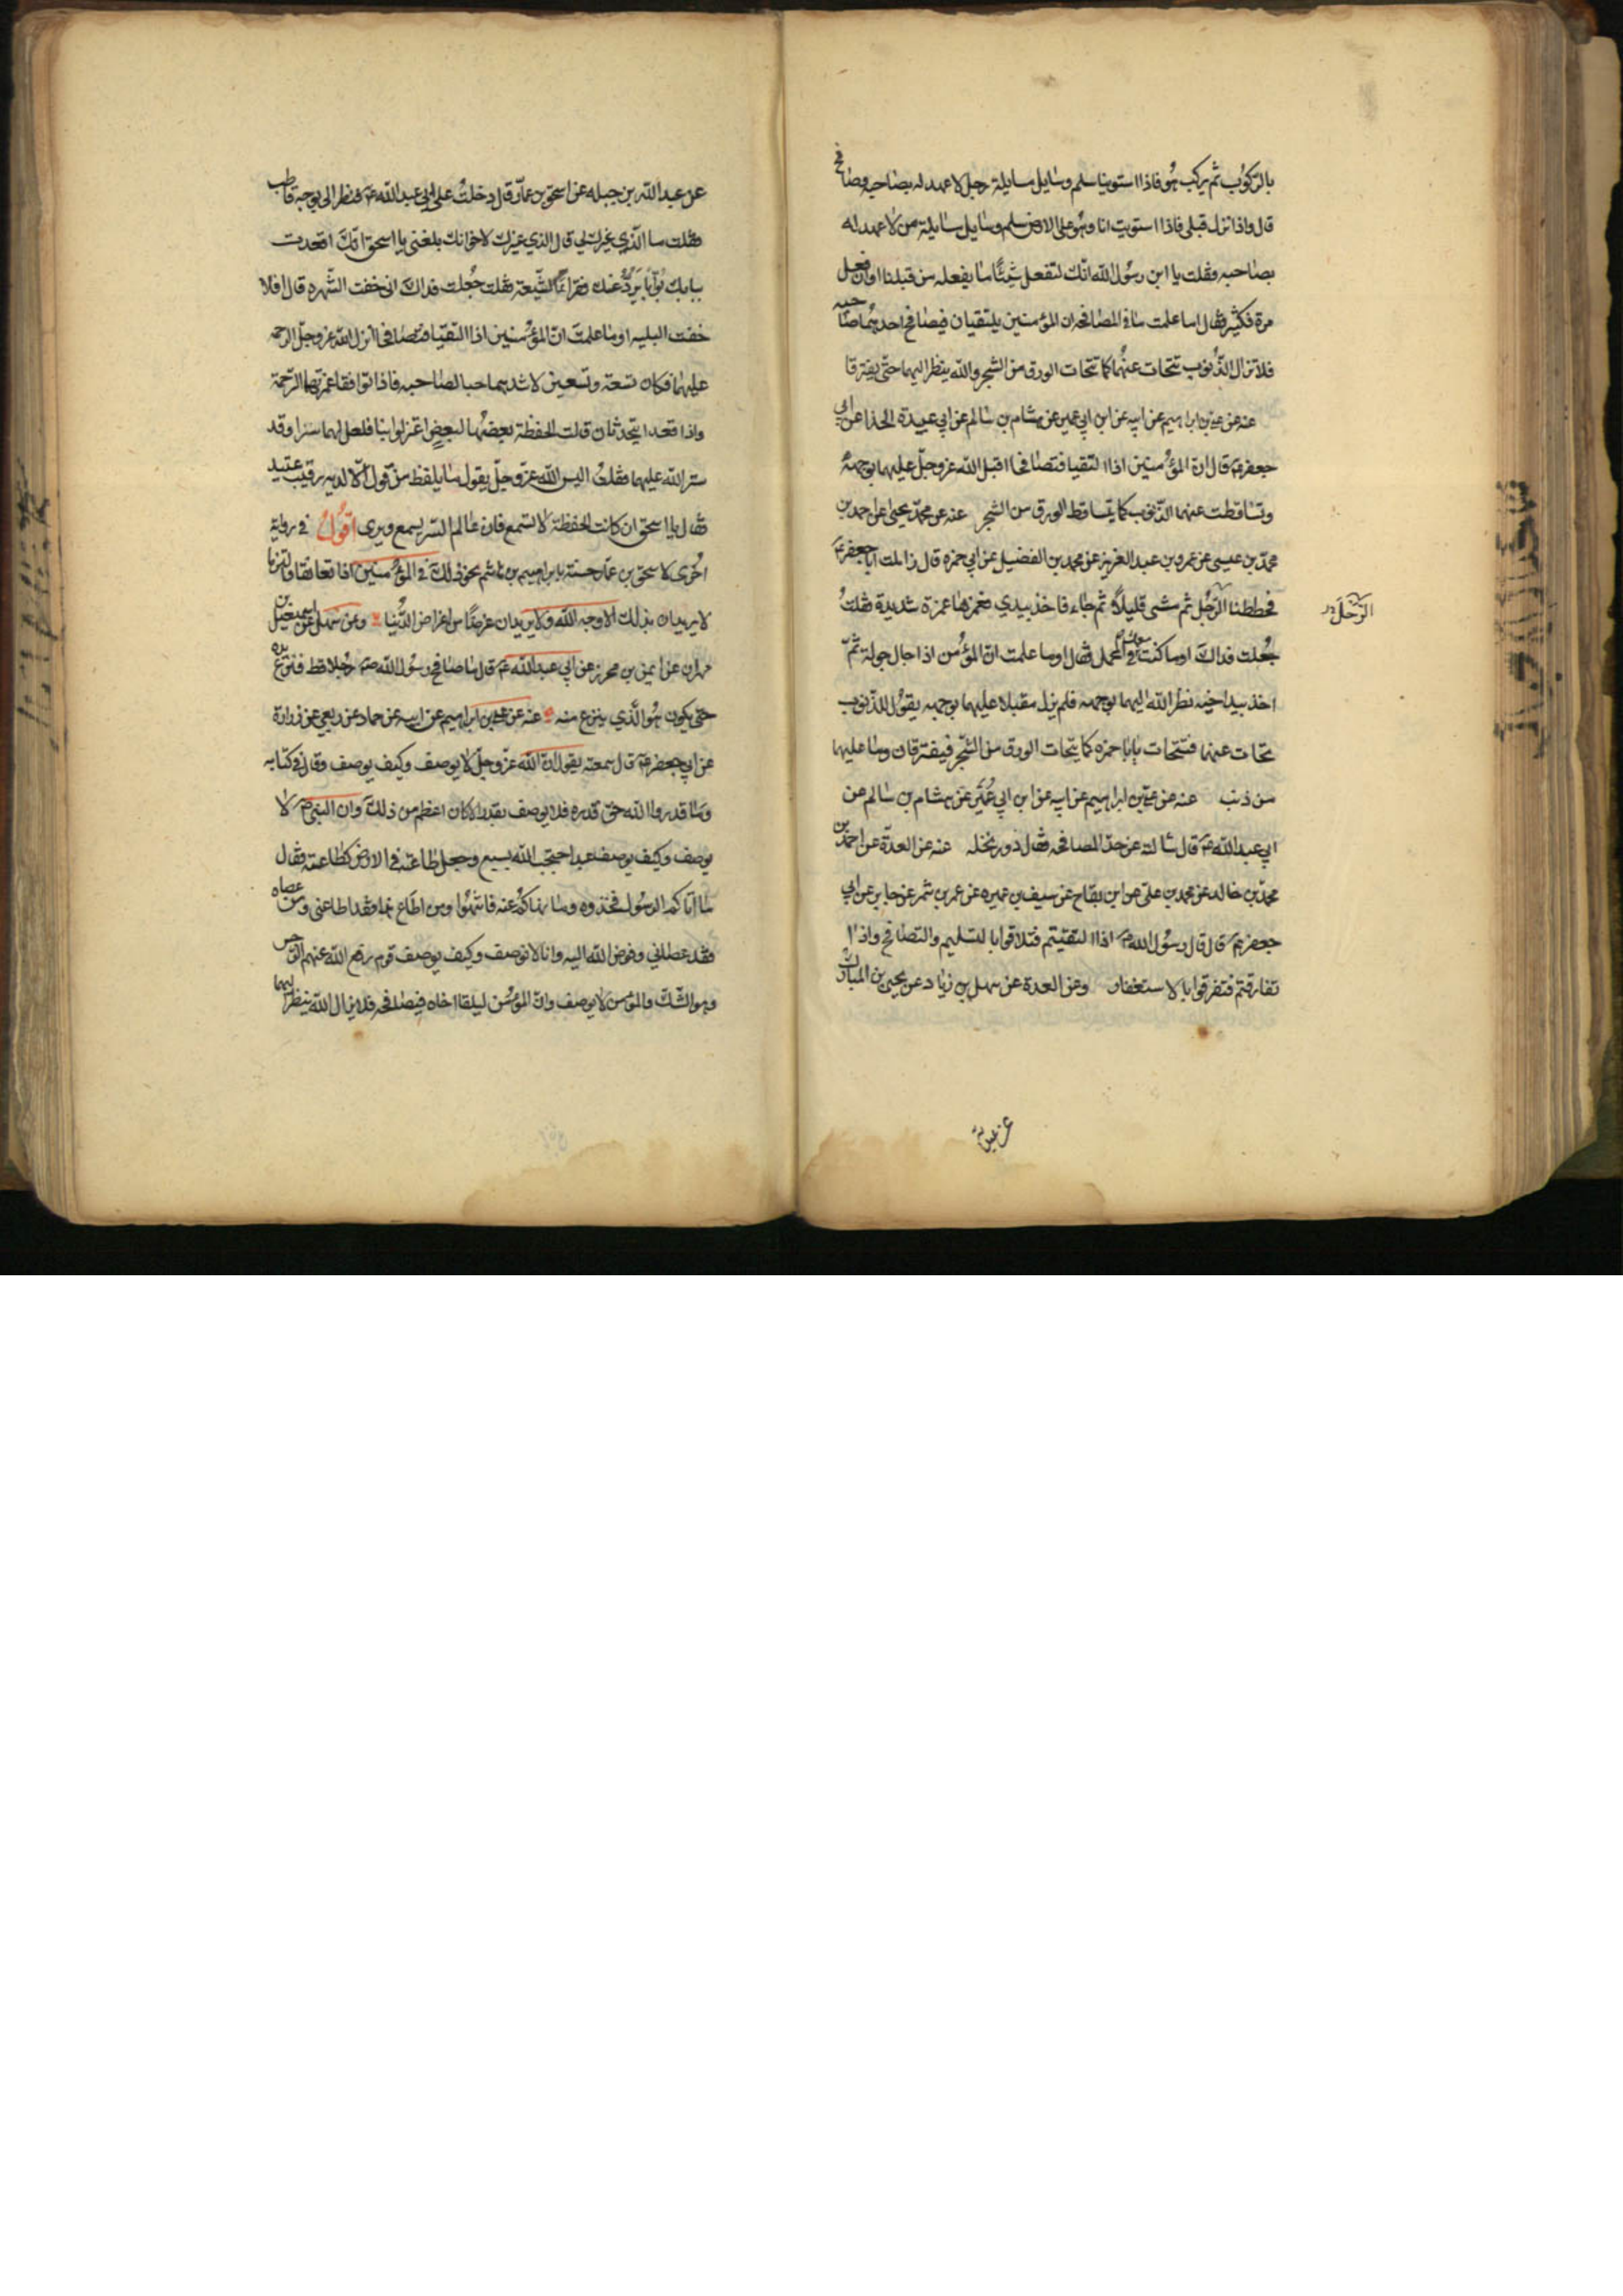 بالركوب ثم يركب هو فاذا استوينا سلم وسايل مسايلة رجل لا عهد له بصاحبه وصافح
قال واذا نزل قبلي فاذا استويت انا وهو على الارض سلم وسايل مسايلة من لا عهد له
بصاحبه فقلت يا ابن رسول الله انك لتفعل شيئا ما يفعله من قبلنا وان فعل
مرة فكثير فقال اما علمت ما في المصافحه ان المؤمنين يلتقيان فيصافح احدهما صاحبه
فلا تزال الذنوب تتحات عنهما كما تتحات الورق من الشجر والله ينظر اليهما حتى يفترقا
عنه عن علي بن ابراهيم عن ابيه عن ابن ابي عمير عن هشام بن سالم عن ابي عبيدة الحذا عن ابي
جعفر ع قال ان المؤمنين اذا التقيا فتصافحا اقبل الله عز وجل عليهما بوجهه
وتساقطت عنهما الذنوب كما يتساقط الورق من الشجر عنه عن محمد يحيى عن احمد بن
محمد بن عيسى عن عمرو بن عبد العزيز عن محمد بن الفضيل عن ابي حمزه قال زاملت ابا جعفر ع
فحططنا الرحل ثم مشى قليلا ثم جاء فاخذ بيدي فغمزها غمزة شديدة فقلت
الرحل
جعلت فداك اوما كنت معك في المحمل فقال اوما علمت ان المؤمن اذا جال جولة ثم
اخذ بيد اخيه نظر الله اليهما بوجهه فلم يزل مقبلا عليهما بوجهه يقول للذنوب
تحات عنهما فتتحات يابا حمزه كما يتحات الورق من الشجر فيفترقان وما عليهما
من ذنب عنه عن علي بن ابراهيم عن ابيه عن ابن ابي عمير عن هشام بن سالم عن
ابي عبد الله ع قال سالته عن حد المصافحه فقال دور نخله عنه عن العدة عن احمد بن
محمد بن خالد عن محمد بن علي عن ابن بقاح عن سيف بن عميره عن عمرو بن شمر عن جابر عن ابي
جعفر ع قال قال رسول الله ص اذا التقيتم فتلاقوا بالتسليم والتصافح واذا
تفارقتم فتفرقوا بالاستغفار وعن العدة عن سهل بن زياد عن يحيى بن المبارك
عن عبد الله
عن عبد الله بن جبله عن اسحق بن عمار قال دخلت على ابي عبد الله ع فنظر الي بوجه قاطب
فقلت ما الذي غيرك لي قال الذي غيرك لاخوانك بلغني يا اسحق انك اقعدت
ببابك بوابا يرد عنك فقراء الشيعة فقلت جعلت فداك اني خفت الشهره قال افلا
خفت البليه اوما علمت ان المؤمنين اذا التقيا فتصافحا انزل الله عز وجل الرحمه
عليهما فكان تسعة وتسعين لاشدهما حبا لصاحبه فاذا توافقا غمرتهما الرحمة
واذا قعدا يتحدثان قالت الحفظة بعضها لبعض اعتزلوا بنا فلعل لهما سرا وقد
ستر الله عليهما فقلت اليس الله عز وجل يقول ما يلفظ من قول الا لديه رقيب عتيد
فقال يا اسحق ان كانت الحفظة لا تسمع فان عالم السر يسمع ويرى اقول في رواية
اخرى لاسحق بن عمار حسنة بابراهيم بن هاشم نحو ذلك في المؤمنين اذا تعانقا والتزما
لا يريدان بذلك الا وجه الله ولا يريدان عرضا من اغراض الدنيا وعن سهل عن اسمعيل بن
مهران عن ايمن بن محرز عن ابي عبد الله ع قال ما صافح رسول الله ص رجلا قط فنزع يده
حتى يكون هو الذي ينزع منه عنه عن علي بن ابراهيم عن ابيه عن حماد عن ربعي عن زرارة
عن ابي جعفر ع قال سمعته يقول ان الله عز وجل لا يوصف وكيف يوصف وقال في كتابه
وما قدروا الله حق قدره فلا يوصف بقدر الا كان اعظم من ذلك وان النبي ص لا
يوصف وكيف يوصف عبد احتجب الله بسبع وجعل طاعته في الارض كطاعته فقال
ما اتاكم الرسول فخذوه وما نهاكم عنه فانتهوا ومن اطاع هذا فقد اطاعني ومن عصاه
فقد عصاني وفوض الله اليه وانا لا نوصف وكيف يوصف قوم رفع الله عنهم الرجس
وهو الشك والمؤمن لا يوصف وان المؤمن ليلقا اخاه فيصافحه فلا يزال الله ينظر اليهما